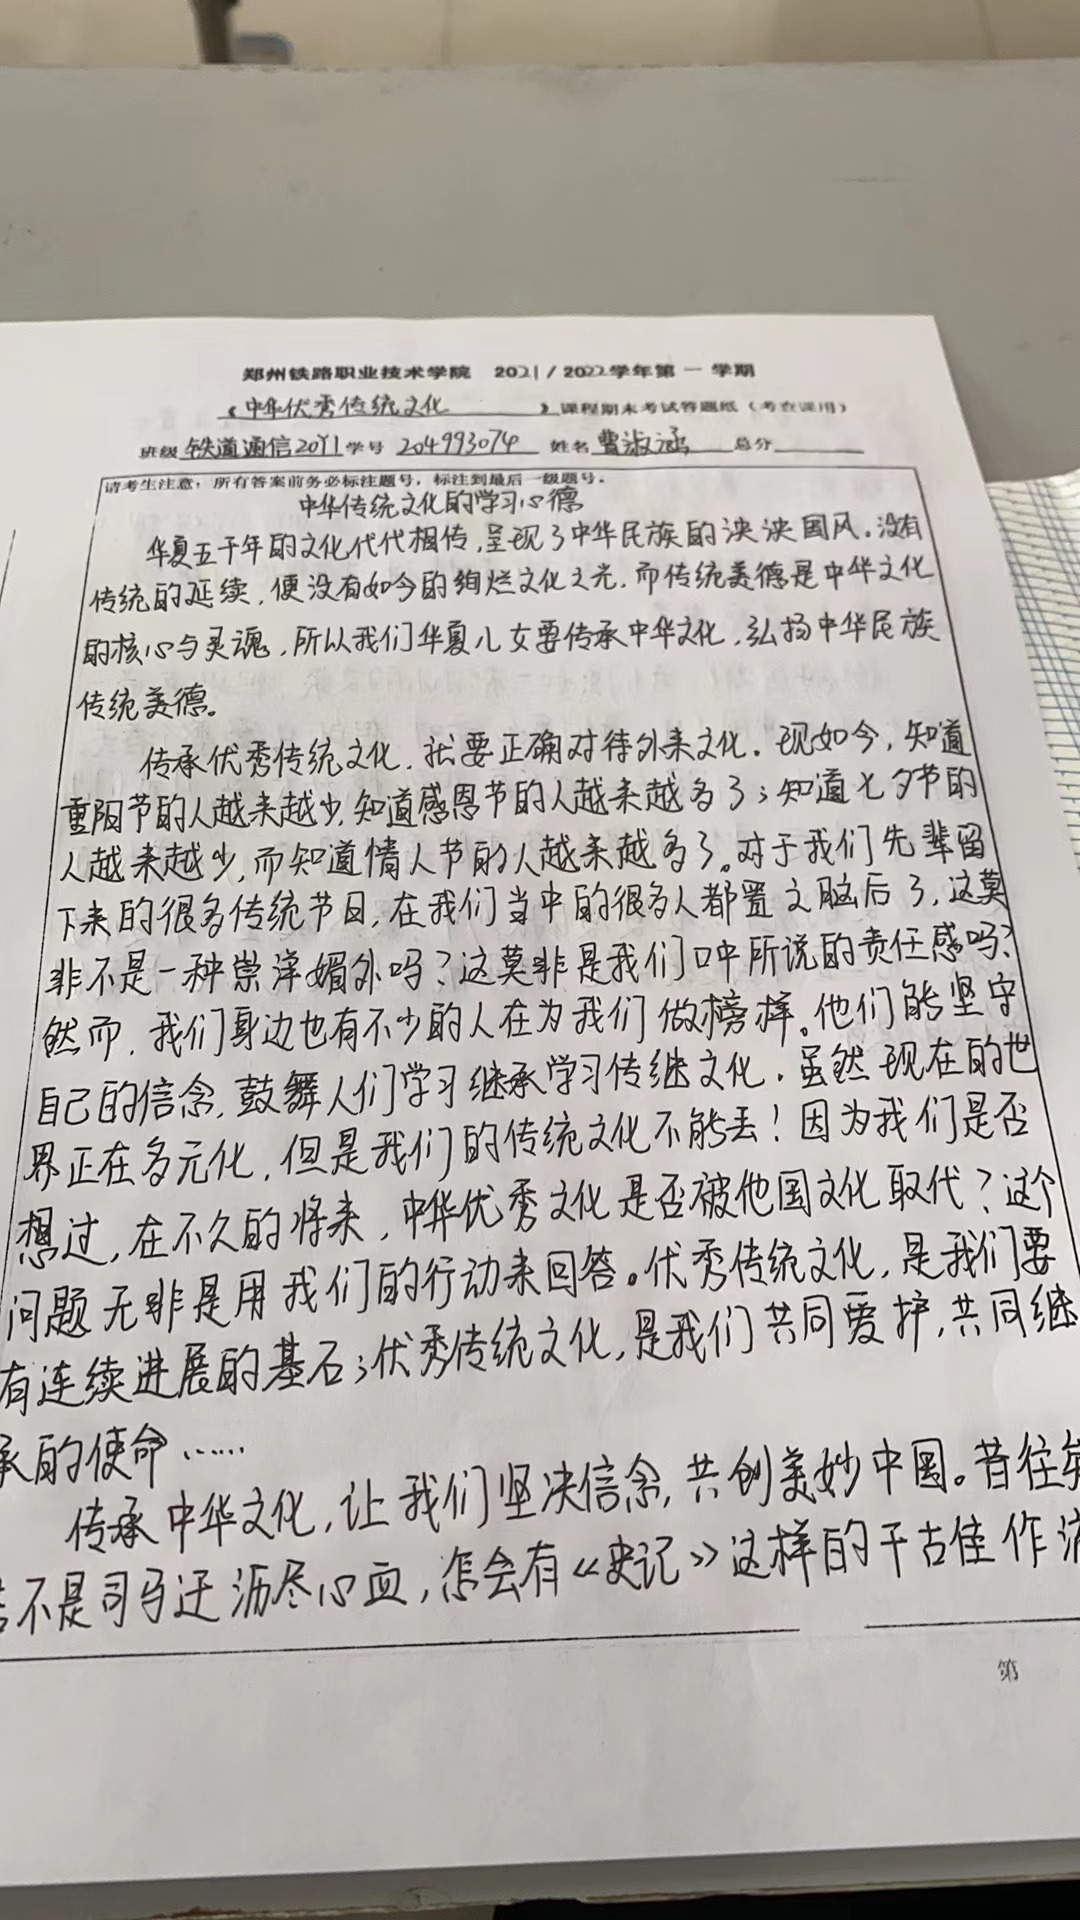 郑州铁路职业技术学院 2021/2022学年第一学期
《中华优秀传统文化》课程期末考试答题纸(考查课用)
班级 铁道通信20Y1 学号 204993074 姓名 曹淑涵 总分
请考生注意:所有答案前务必标注题号,标注到最后一级题号。
中华传统文化的学习心德
华夏五千年的文化代代相传,呈现了中华民族的泱泱国风。没有
传统的延续,便没有如今的绚烂文化之光.而传统美德是中华文化
的核心与灵魂,所以我们华夏儿女要传承中华文化,弘扬中华民族
传统美德。
传承优秀传统文化,就要正确对待外来文化.现如今,知道
重阳节的人越来越少,知道感恩节的人越来越多了;知道七夕节的
人越来越少,而知道情人节的人越来越多了。对于我们先辈留
下来的很多传统节日,在我们当中的很多人都置之脑后了,这莫
非不是一种崇洋媚外吗?这莫非是我们口中所说的责任感吗?
然而,我们身边也有不少的人在为我们做榜样。他们能坚守
自己的信念,鼓舞人们学习继承学习传继文化.虽然现在的世
界正在多元化,但是我们的传统文化不能丢!因为我们是否
想过,在不久的将来,中华优秀文化是否被他国文化取代?这个
问题无非是用我们的行动来回答。优秀传统文化,是我们要
有连续进展的基石;优秀传统文化,是我们共同爱护,共同继
承的使命……
传承中华文化,让我们坚决信念,共创美妙中国。昔往
若不是司马迁沥尽心血,怎会有《史记》这样的千古佳作
第